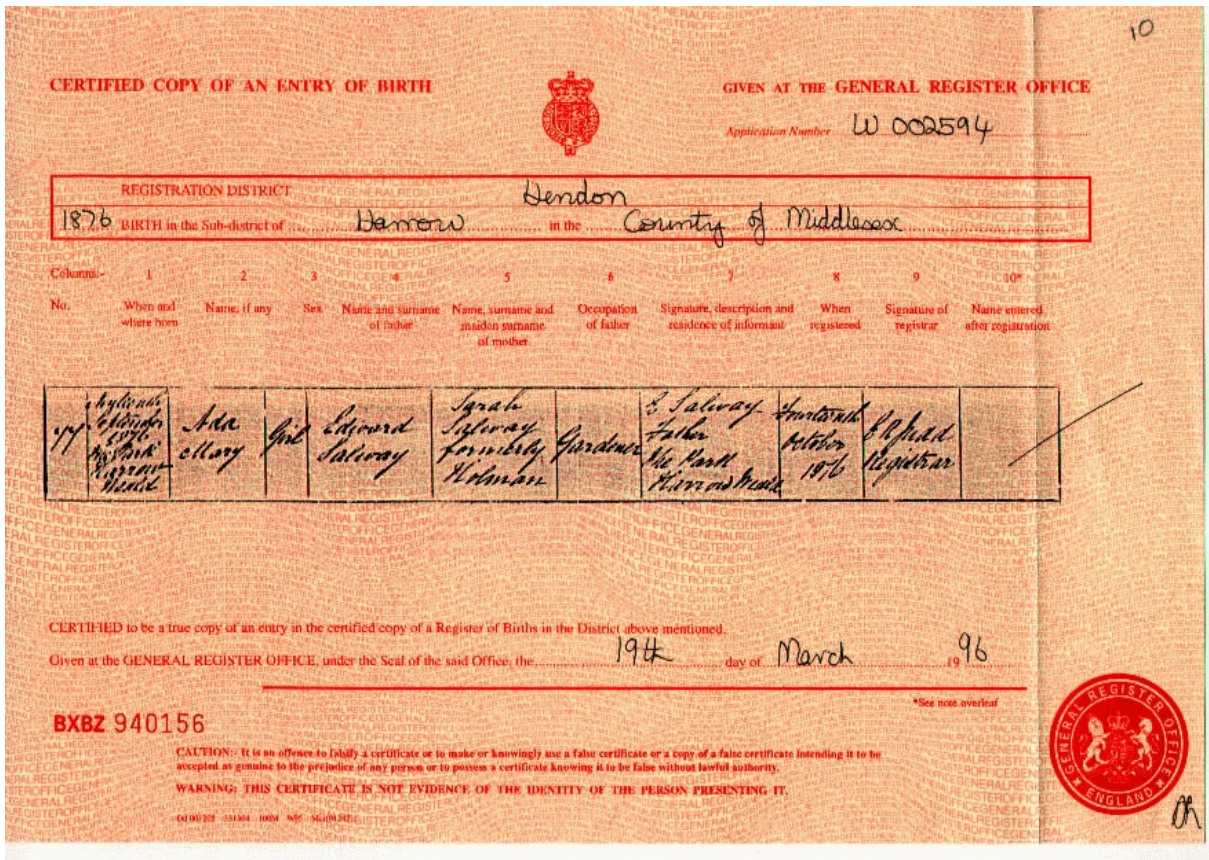 10
CERTIFIED COPY OF AN ENTRY OF BIRTH
GIVEN AT THE GENERAL REGISTER OFFICE
Application Number W 002594
REGISTRATION DISTRICT Hendon
1876 BIRTH in the Sub-district of Harrow in the County of Middlesex
Columns:- 1 2 3 4 5 6 7 8 9 10*
No. When and where born Name, if any Sex Name and surname of father Name, surname and maiden surname of mother Occupation of father Signature, description and residence of informant When registered Signature of registrar Name entered after registration
September
1876
Park
Harrow
Weald
Ada
Mary
Girl
Edward
Salway
Sarah
Salway
formerly
Holman
Gardener
E Salway
Father
The Park
Harrow Weald
Fourteenth
October
1876
Registrar
CERTIFIED to be a true copy of an entry in the certified copy of a Register of Births in the District above mentioned.
Given at the GENERAL REGISTER OFFICE, under the Seal of the said Office, the 19th day of March 1996
*See note overleaf
BXBZ 940156
CAUTION:- It is an offence to falsify a certificate or to make or knowingly use a false certificate or a copy of a false certificate intending it to be
accepted as genuine to the prejudice of any person or to possess a certificate knowing it to be false without lawful authority.
WARNING: THIS CERTIFICATE IS NOT EVIDENCE OF THE IDENTITY OF THE PERSON PRESENTING IT.
GENERAL REGISTER OFFICE
ENGLAND